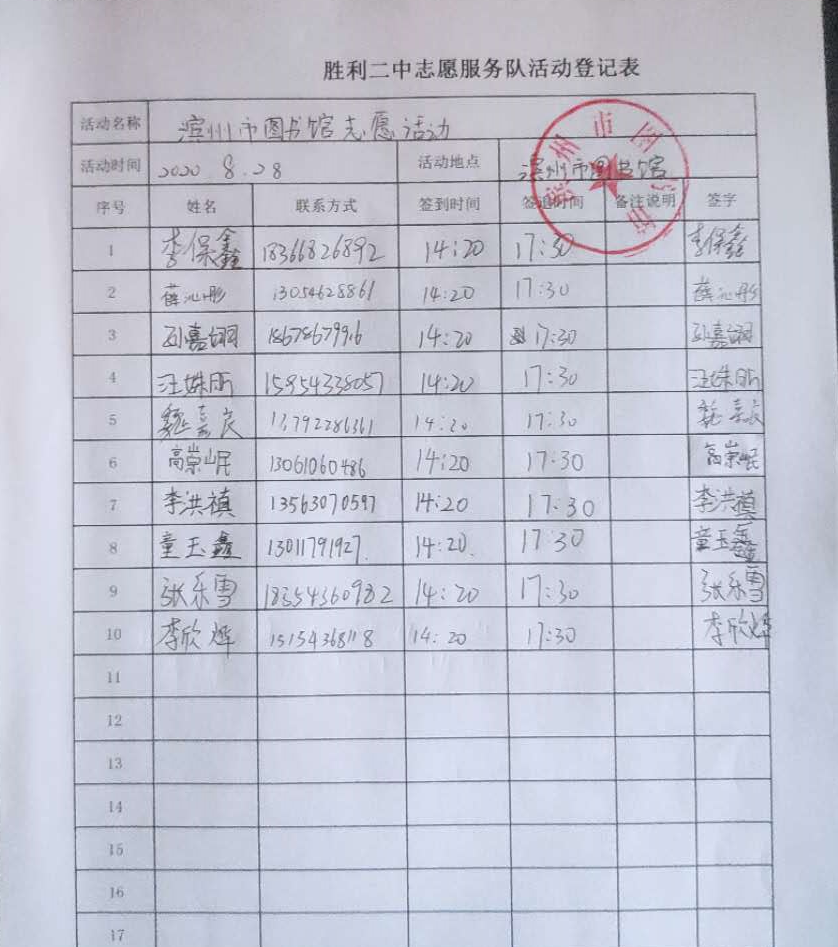 胜利二中志愿服务队活动登记表
活动名称 滨州市图书馆志愿活动
活动时间 2020 8.28 活动地点 滨州市图书馆
序号 姓名 联系方式 签到时间 签退时间 备注说明 签字
1 李保鑫 18366826892 14:20 17:30 李保鑫
2 薛沁彤 13054628861 14:20 17:30 薛沁彤
3 孙嘉翊 14:20 17:30 孙嘉翊
4 汪姝昕 15954338057 14:20 17:30 汪姝昕
5 魏嘉良 14:20 17:30 魏嘉良
6 高崇岷 13061060486 14:20 17:30 高崇岷
7 李洪禛 13563070597 14:20 17:30 李洪禛
8 童玉鑫 13011791927 14:20 17:30 童玉鑫
9 张乐雪 18354360982 14:20 17:30 张乐雪
10 李欣烨 15154368118 14:20 17:30 李欣烨
11
12
13
14
15
16
17